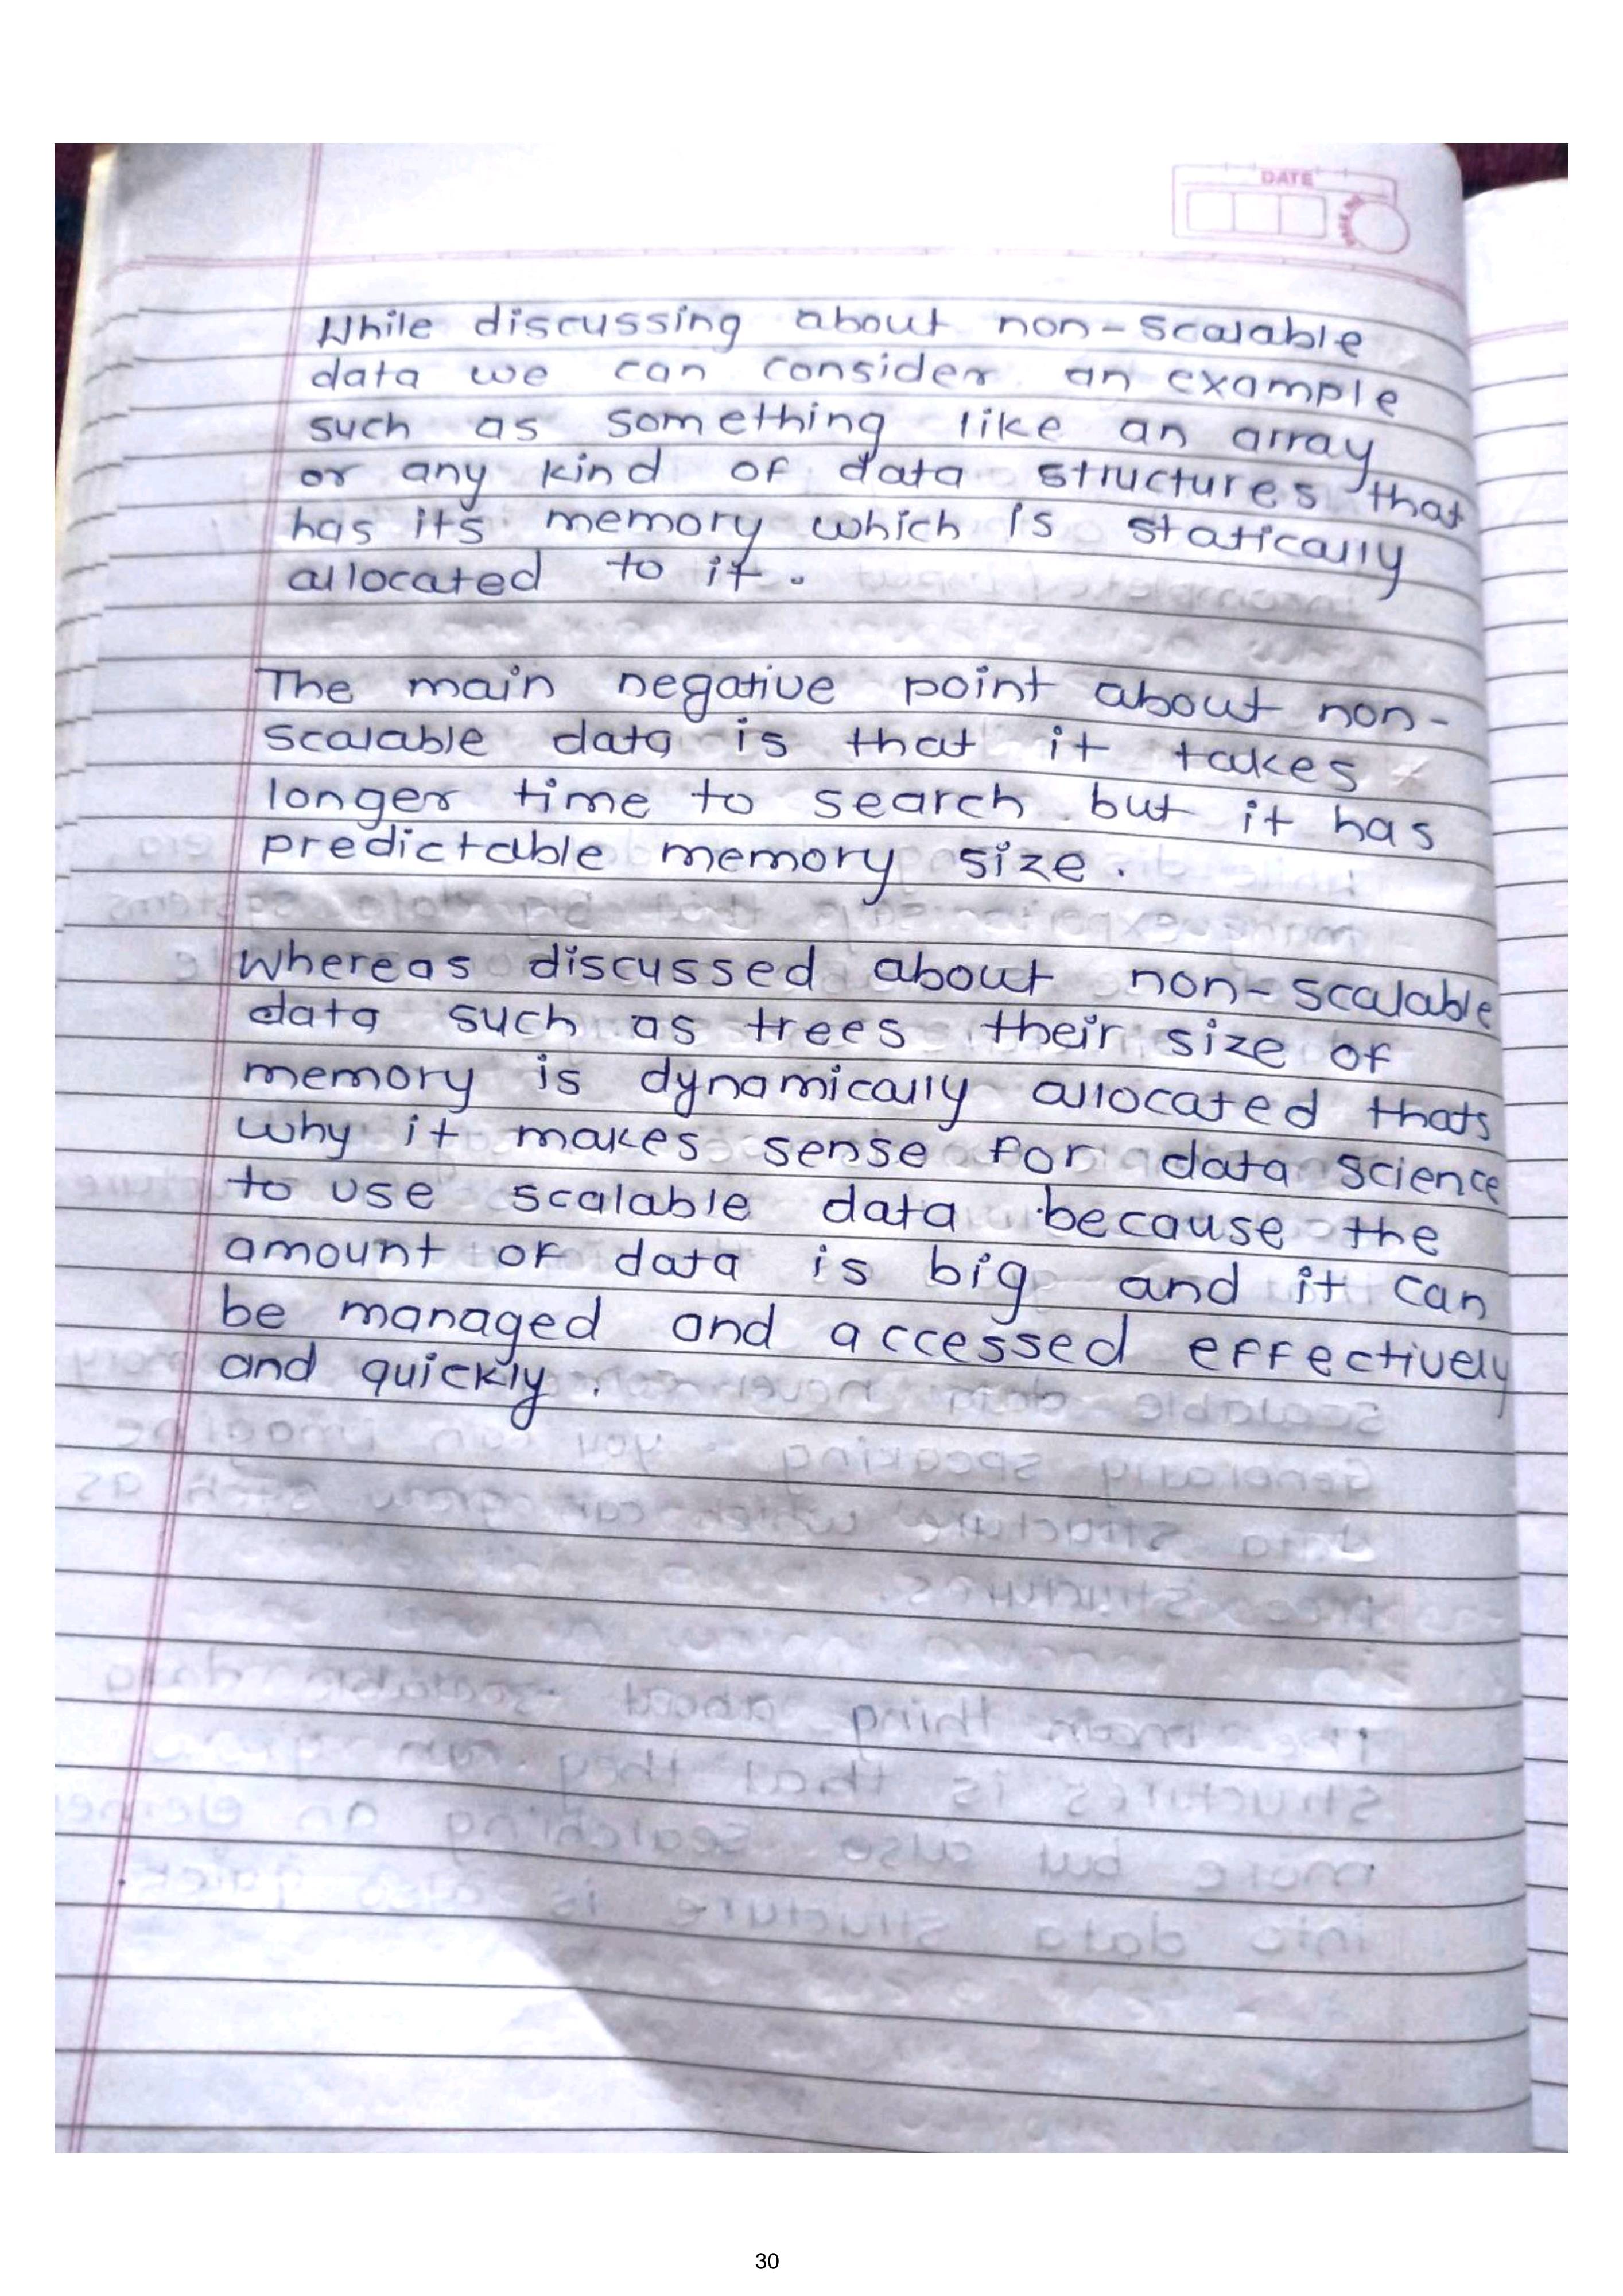 DATE
While discussing about non-scalable
data we can consider an example
such as something like an array
or any kind of data structures that
has its memory which is statically
allocated to it.
The main negative point about non-
scalable data is that it takes
longer time to search but it has
predictable memory size.
Whereas discussed about non-scalable
data such as trees their size of
memory is dynamically allocated thats
why it makes sense for data science
to use scalable data because the
amount of data is big and it can
be managed and accessed effectively
and quickly.
30